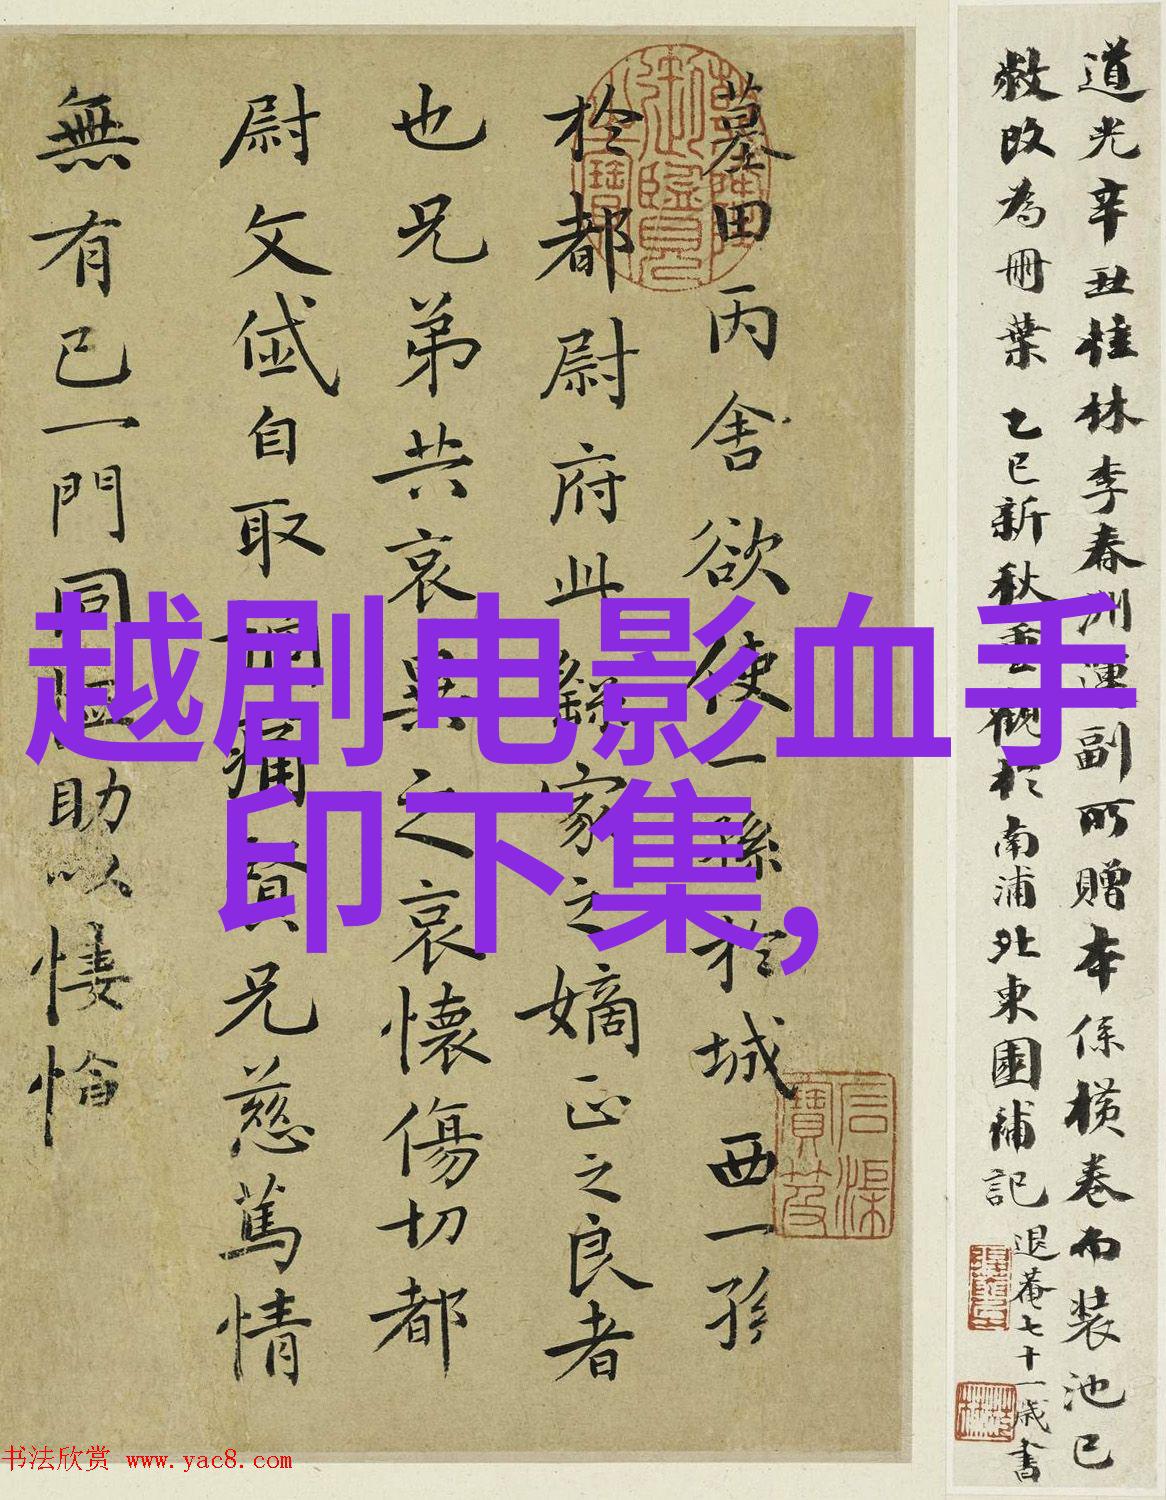 道光辛丑桂林李春洲運副所贈本係橫卷而裝池已
敝改為冊葉 乙巳新秋重觀於南浦北東園補記 退菴七十一歲書
墓田丙舍欲使一孫於城西一孫
於都尉府此繇家之嫡正之良者
也兄弟共哀異之哀懷傷切都
尉文岱自取禍痛賢兄慈篤情
無有已一門同恤助以悽愴
越剧电影血手
印下集,
书法欣赏 www.yac8.com